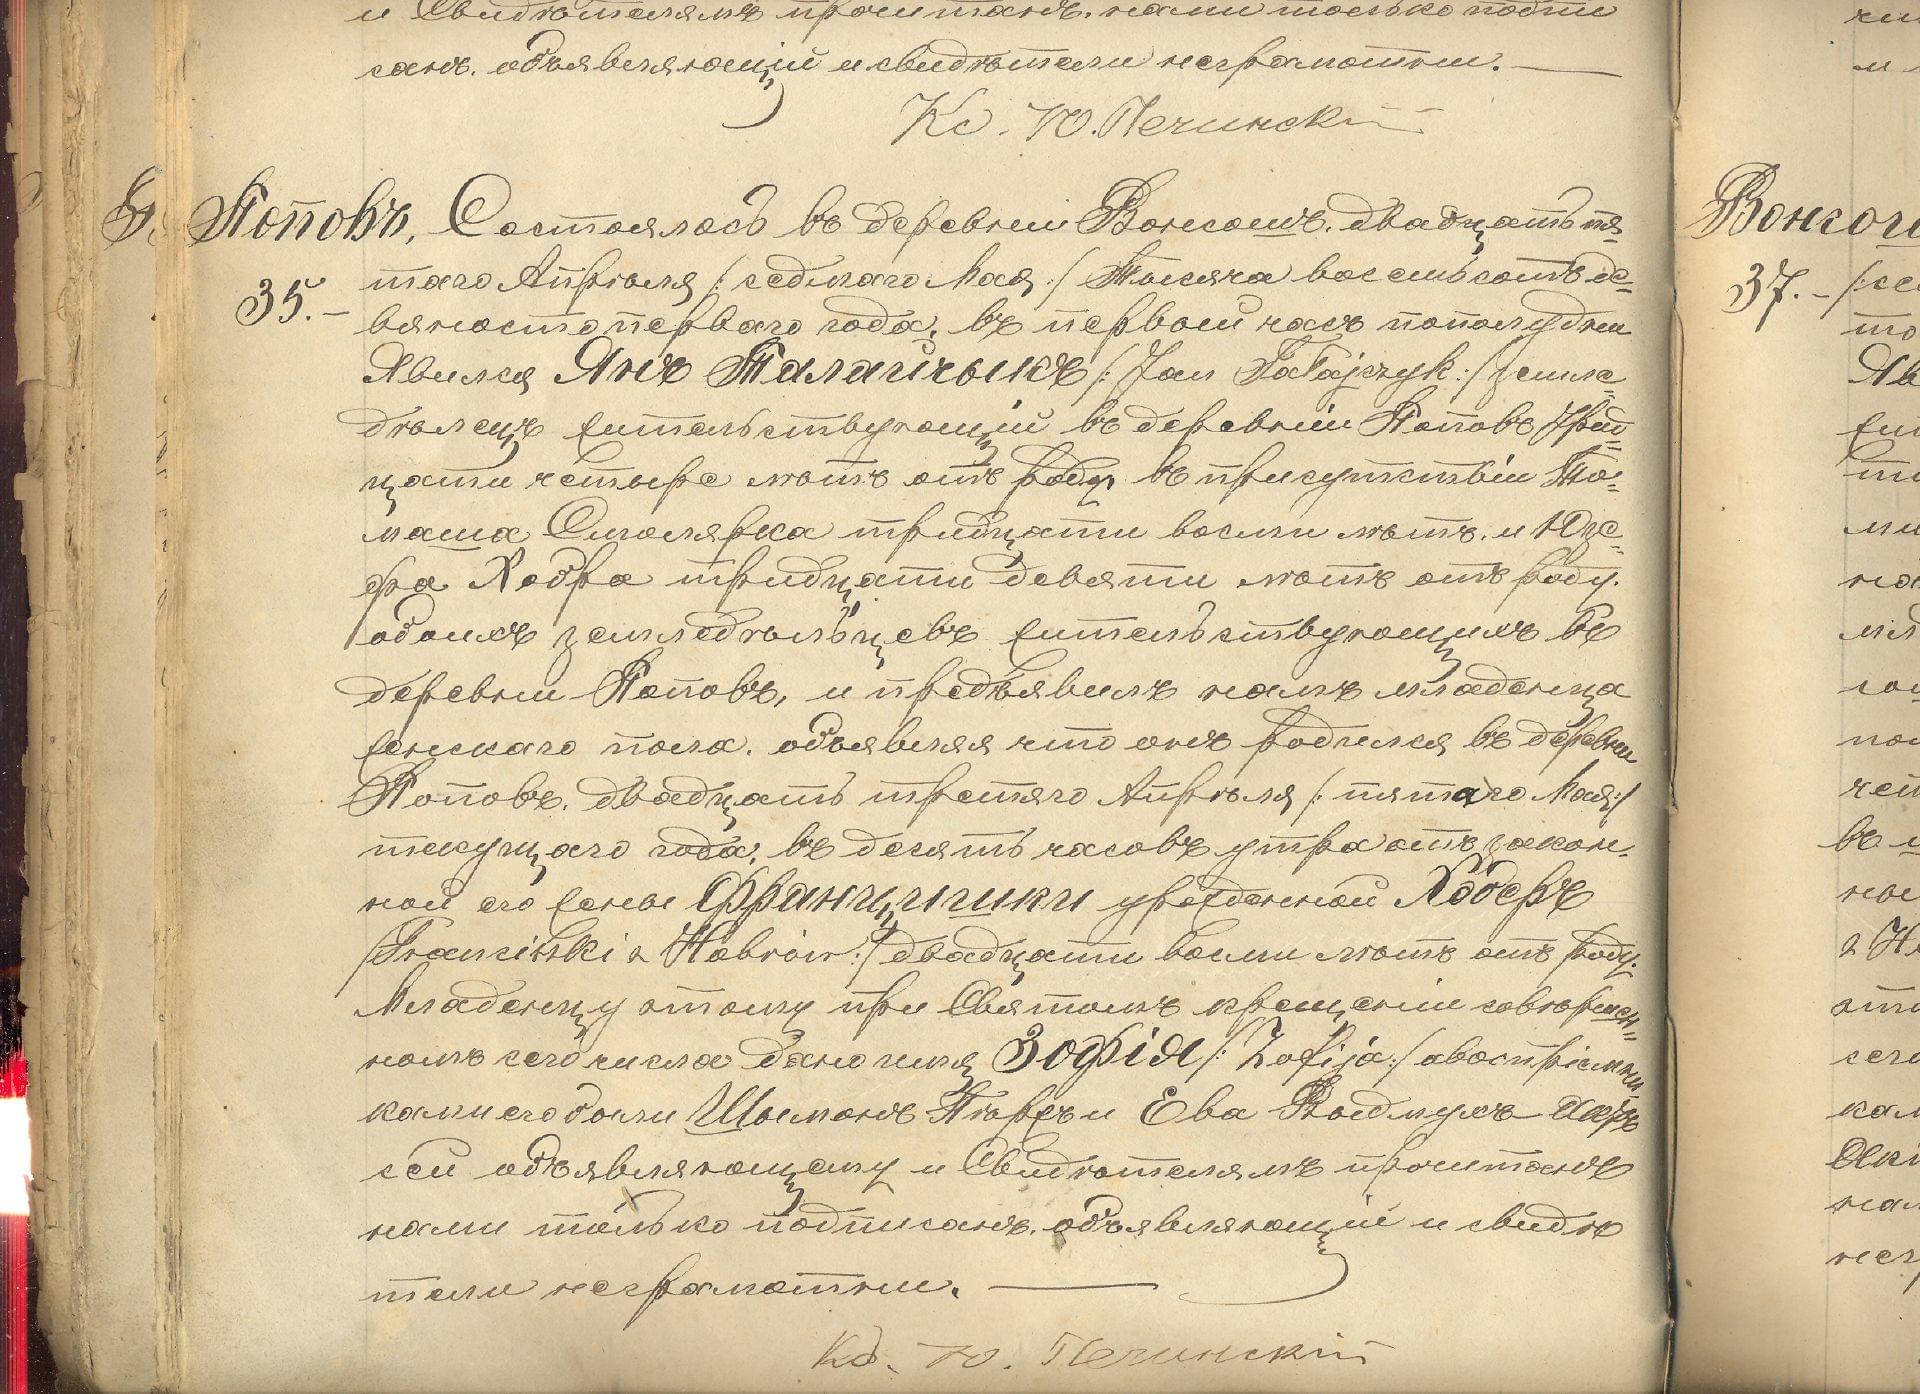 и Свидѣтелямъ прочитанъ. нами только подпи
санъ. объявляющій и свидѣтели неграмотны.
Кс. Ю. Печинскій
Поповъ, Состоялось въ деревни Вонсошъ. двадцать пя=
35.- таго Апрѣля /: седмаго Мая :/ Тысяча восемьсотъ де=
вяносто перваго года, въ первый часъ пополудни
Явился Янъ Талайчыкъ /: Jan Tałajczyk :/ землe=
дѣлецъ жительствующій въ деревни Поповъ Трид=
цати четыре лѣтъ отъ роду въ присутствіи То=
маша Смолярка тридцати восми лѣтъ. и Юзе=
фа Хобра тридцати девяти лѣтъ отъ роду.
обоихъ земледѣльцевъ жительствующихъ въ
деревни Поповъ, и предъявилъ намъ младенца
женскаго пола. объявляя что онъ родился въ деревни
Поповъ. двадцать третяго Апрѣля /: пятаго Мая :/
текущаго года, въ десять часовъ утра отъ закон=
ной его жены Францишки урожденной Хоберъ
/Franciszki z Hobrów :/ двадцати восми лѣтъ отъ роду.
Младенцу этому при Святомъ крещеніи совѣршен=
номъ сего числа дано имя Зофія /: Zofija :/ авоспріемни
ками его были Шымонъ и Ева Актъ
сей объявляющему и Свидѣтелямъ прочитанъ
нами только подписанъ. объявляющій и свидѣ
тели неграмотны.
Кс. Ю. Печинскій
Вонсош
37.-